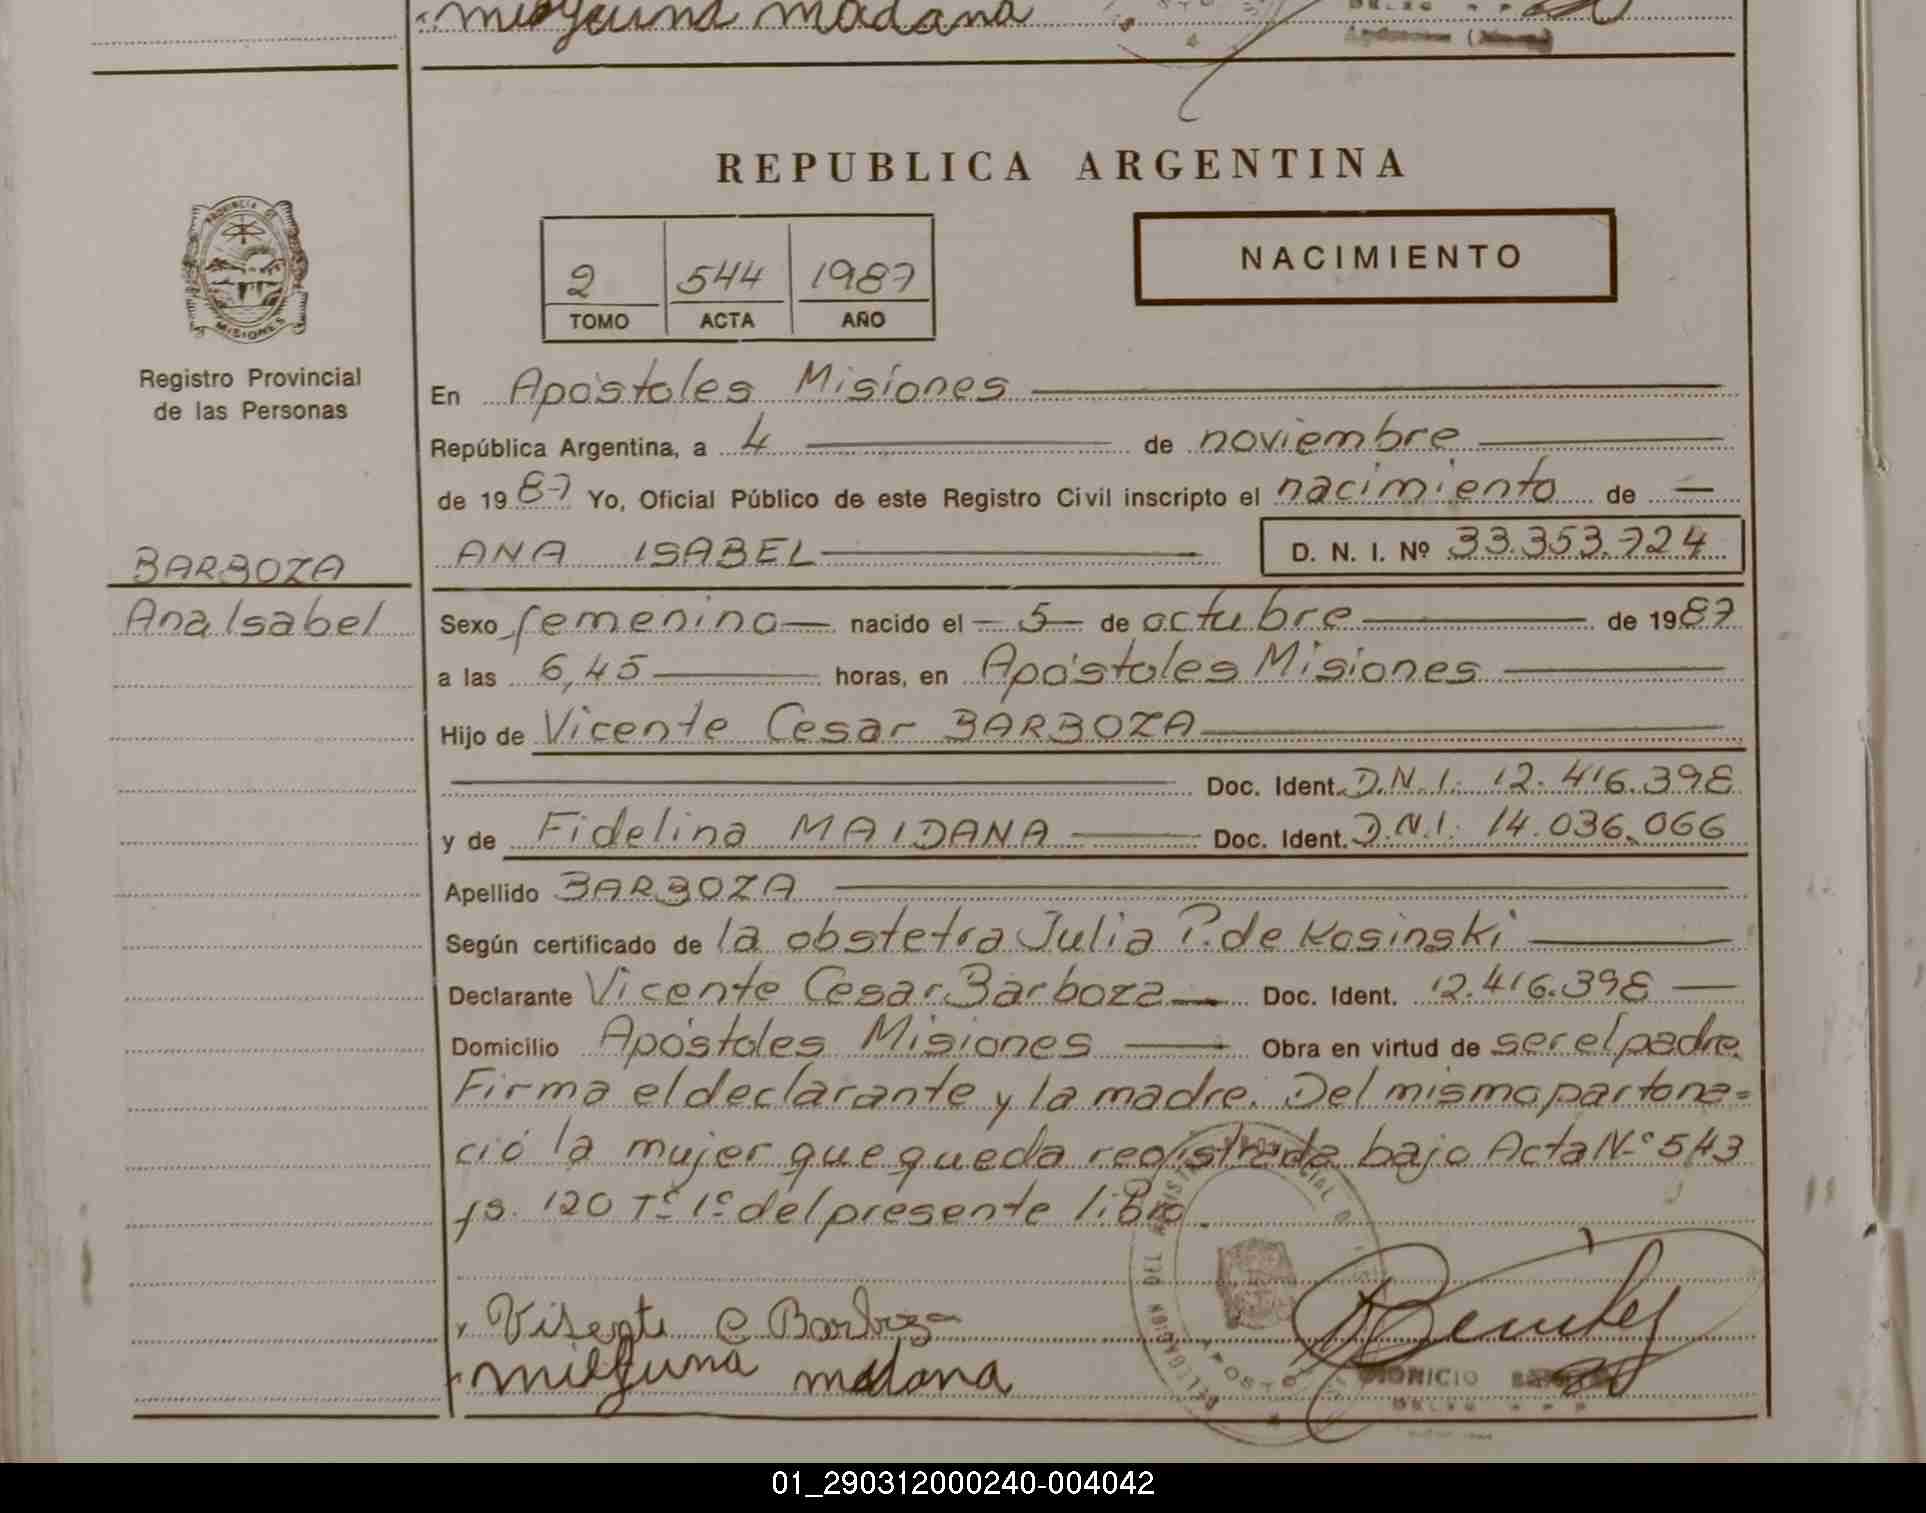 madana
REPUBLICA ARGENTINA
PROVINCIA DE
MISIONES
2 544 1987
TOMO ACTA AÑO
NACIMIENTO
Registro Provincial
de las Personas
En Apóstoles Misiones
República Argentina, a 4 de noviembre
de 1987 Yo, Oficial Público de este Registro Civil inscripto el nacimiento de —
ANA ISABEL D. N. I. Nº 33.353.724
BARBOZA
Ana Isabel
Sexo femenino — nacido el — 5 — de octubre de 1987
a las 6,45 horas, en Apóstoles Misiones
Hijo de Vicente Cesar BARBOZA
Doc. Ident. D.N.I. 12.416.398
y de Fidelina MAIDANA Doc. Ident. D.N.I. 14.036.066
Apellido BARBOZA
Según certificado de la obstetra Julia P. de Kosinski
Declarante Vicente Cesar Barboza — Doc. Ident. 12.416.398 —
Domicilio Apóstoles Misiones — Obra en virtud de ser el padre.
Firma el declarante y la madre. Del mismo parto na=
ció la mujer que queda registrada bajo Acta N° 543
fs. 120 T° 1° del presente libro.
Visente C Barboza
madana
DIONICIO
01_290312000240-004042